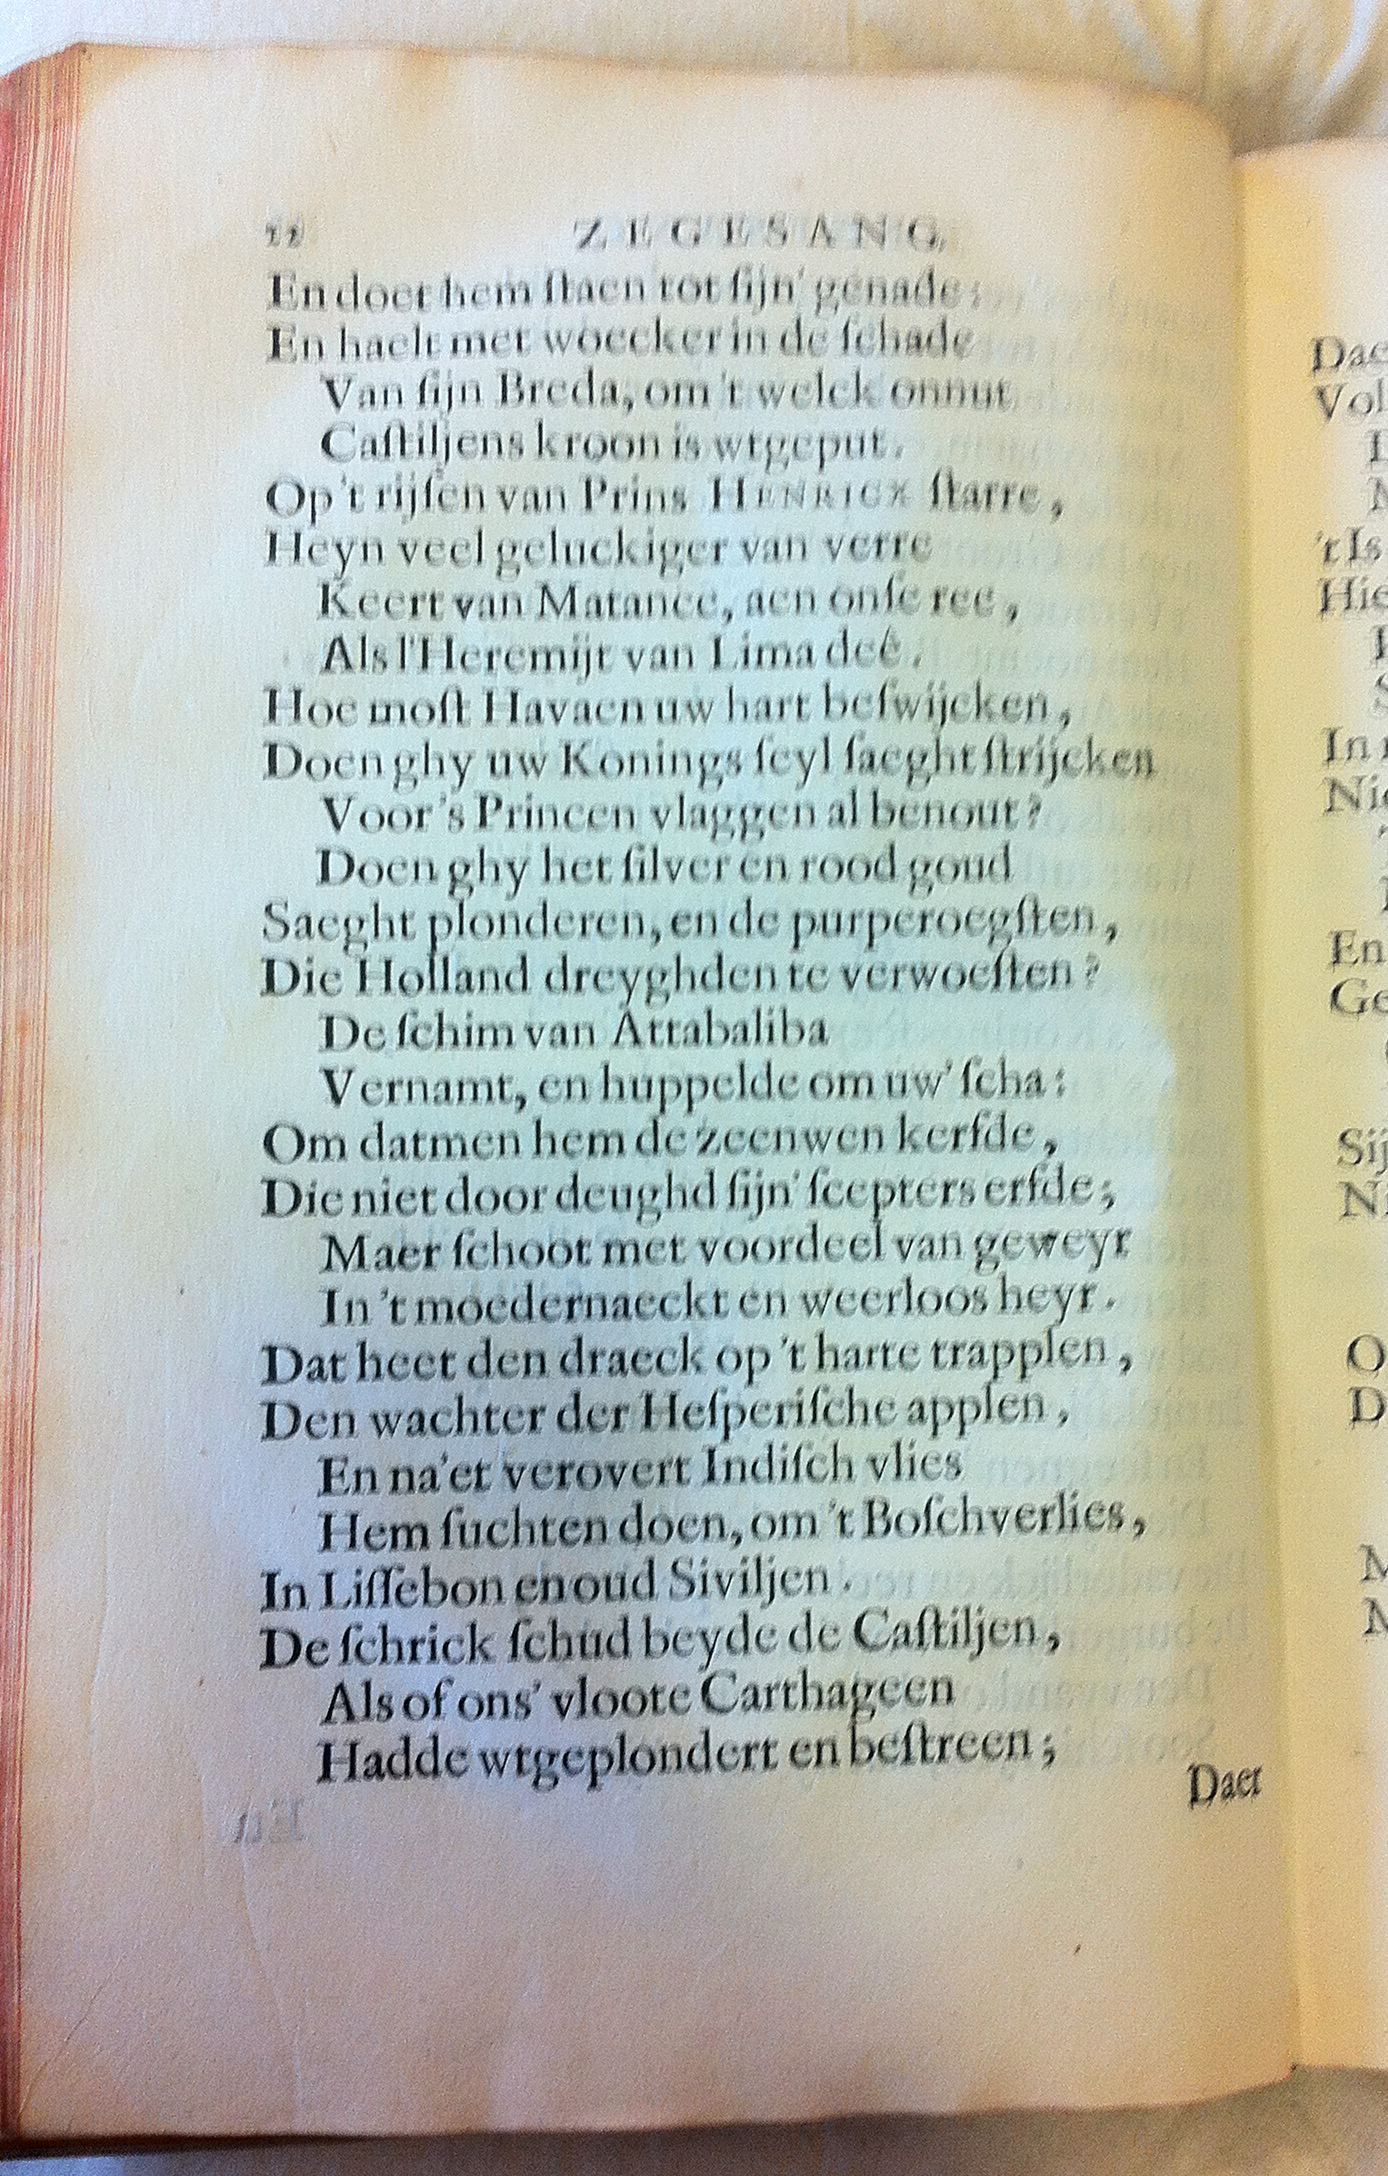 22 ZEGESANG,
En doet hem ſtaen tot ſijn' genade:
En haelt met woecker in de ſchade
Van ſijn Breda, om 't welck onnut
Caſtiljens kroon is wtgeput.
Op 't rijſen van Prins HENRICX ſtarre,
Heyn veel geluckiger van verre
Keert van Matance, aen onſe ree,
Als l'Heremijt van Lima deé.
Hoe moſt Havaen uw hart beſwijcken,
Doen ghy uw Konings ſeyl ſaeght ſtrijcken
Voor 's Princen vlaggen al benout?
Doen ghy het ſilver en rood goud
Saeght plonderen, en de purperoegſten,
Die Holland dreyghden te verwoeſten?
De ſchim van Attabaliba
Vernamt, en huppelde om uw' ſcha:
Om datmen hem de zeenwen kerfde,
Die niet door deughd ſijn' ſcepters erfde;
Maer ſchoot met voordeel van geweyr
In 't moedernaeckt en weerloos heyr.
Dat heet den draeck op 't harte trapplen,
Den wachter der Heſperiſche applen,
En na'et verovert Indiſch vlies
Hem ſuchten doen, om 't Boſchverlies,
In Liſſebon en oud Siviljen.
De ſchrick ſchud beyde de Caſtiljen,
Als of ons' vloote Carthageen
Hadde wtgeplondert en beſtreen;
Daer
Dae
Vol
't Is
Hie
In
Nie
En
Ge
Sij
Ni
O
D
M
M